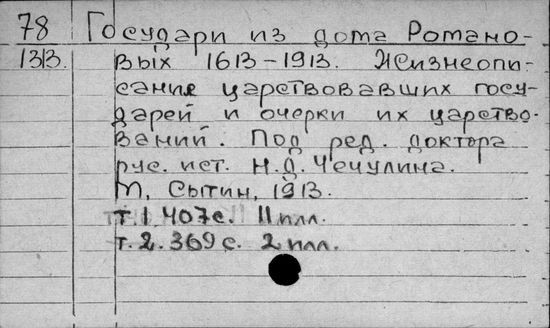 78 Государи из дома Романо-
1313. вых 1613-1913. Жизнеопи-
сания царствовавших госу-
дарей и очерки их царство-
ваний. Под ред. доктора
рус. ист. Н.Д. Чечулина.
М, Сытин, 1913.
т. 1 407с. 11 илл.
т. 2. 369 с. 2 илл.